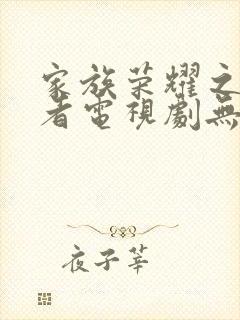 家族荣耀之
者電視劇無
夜子莘